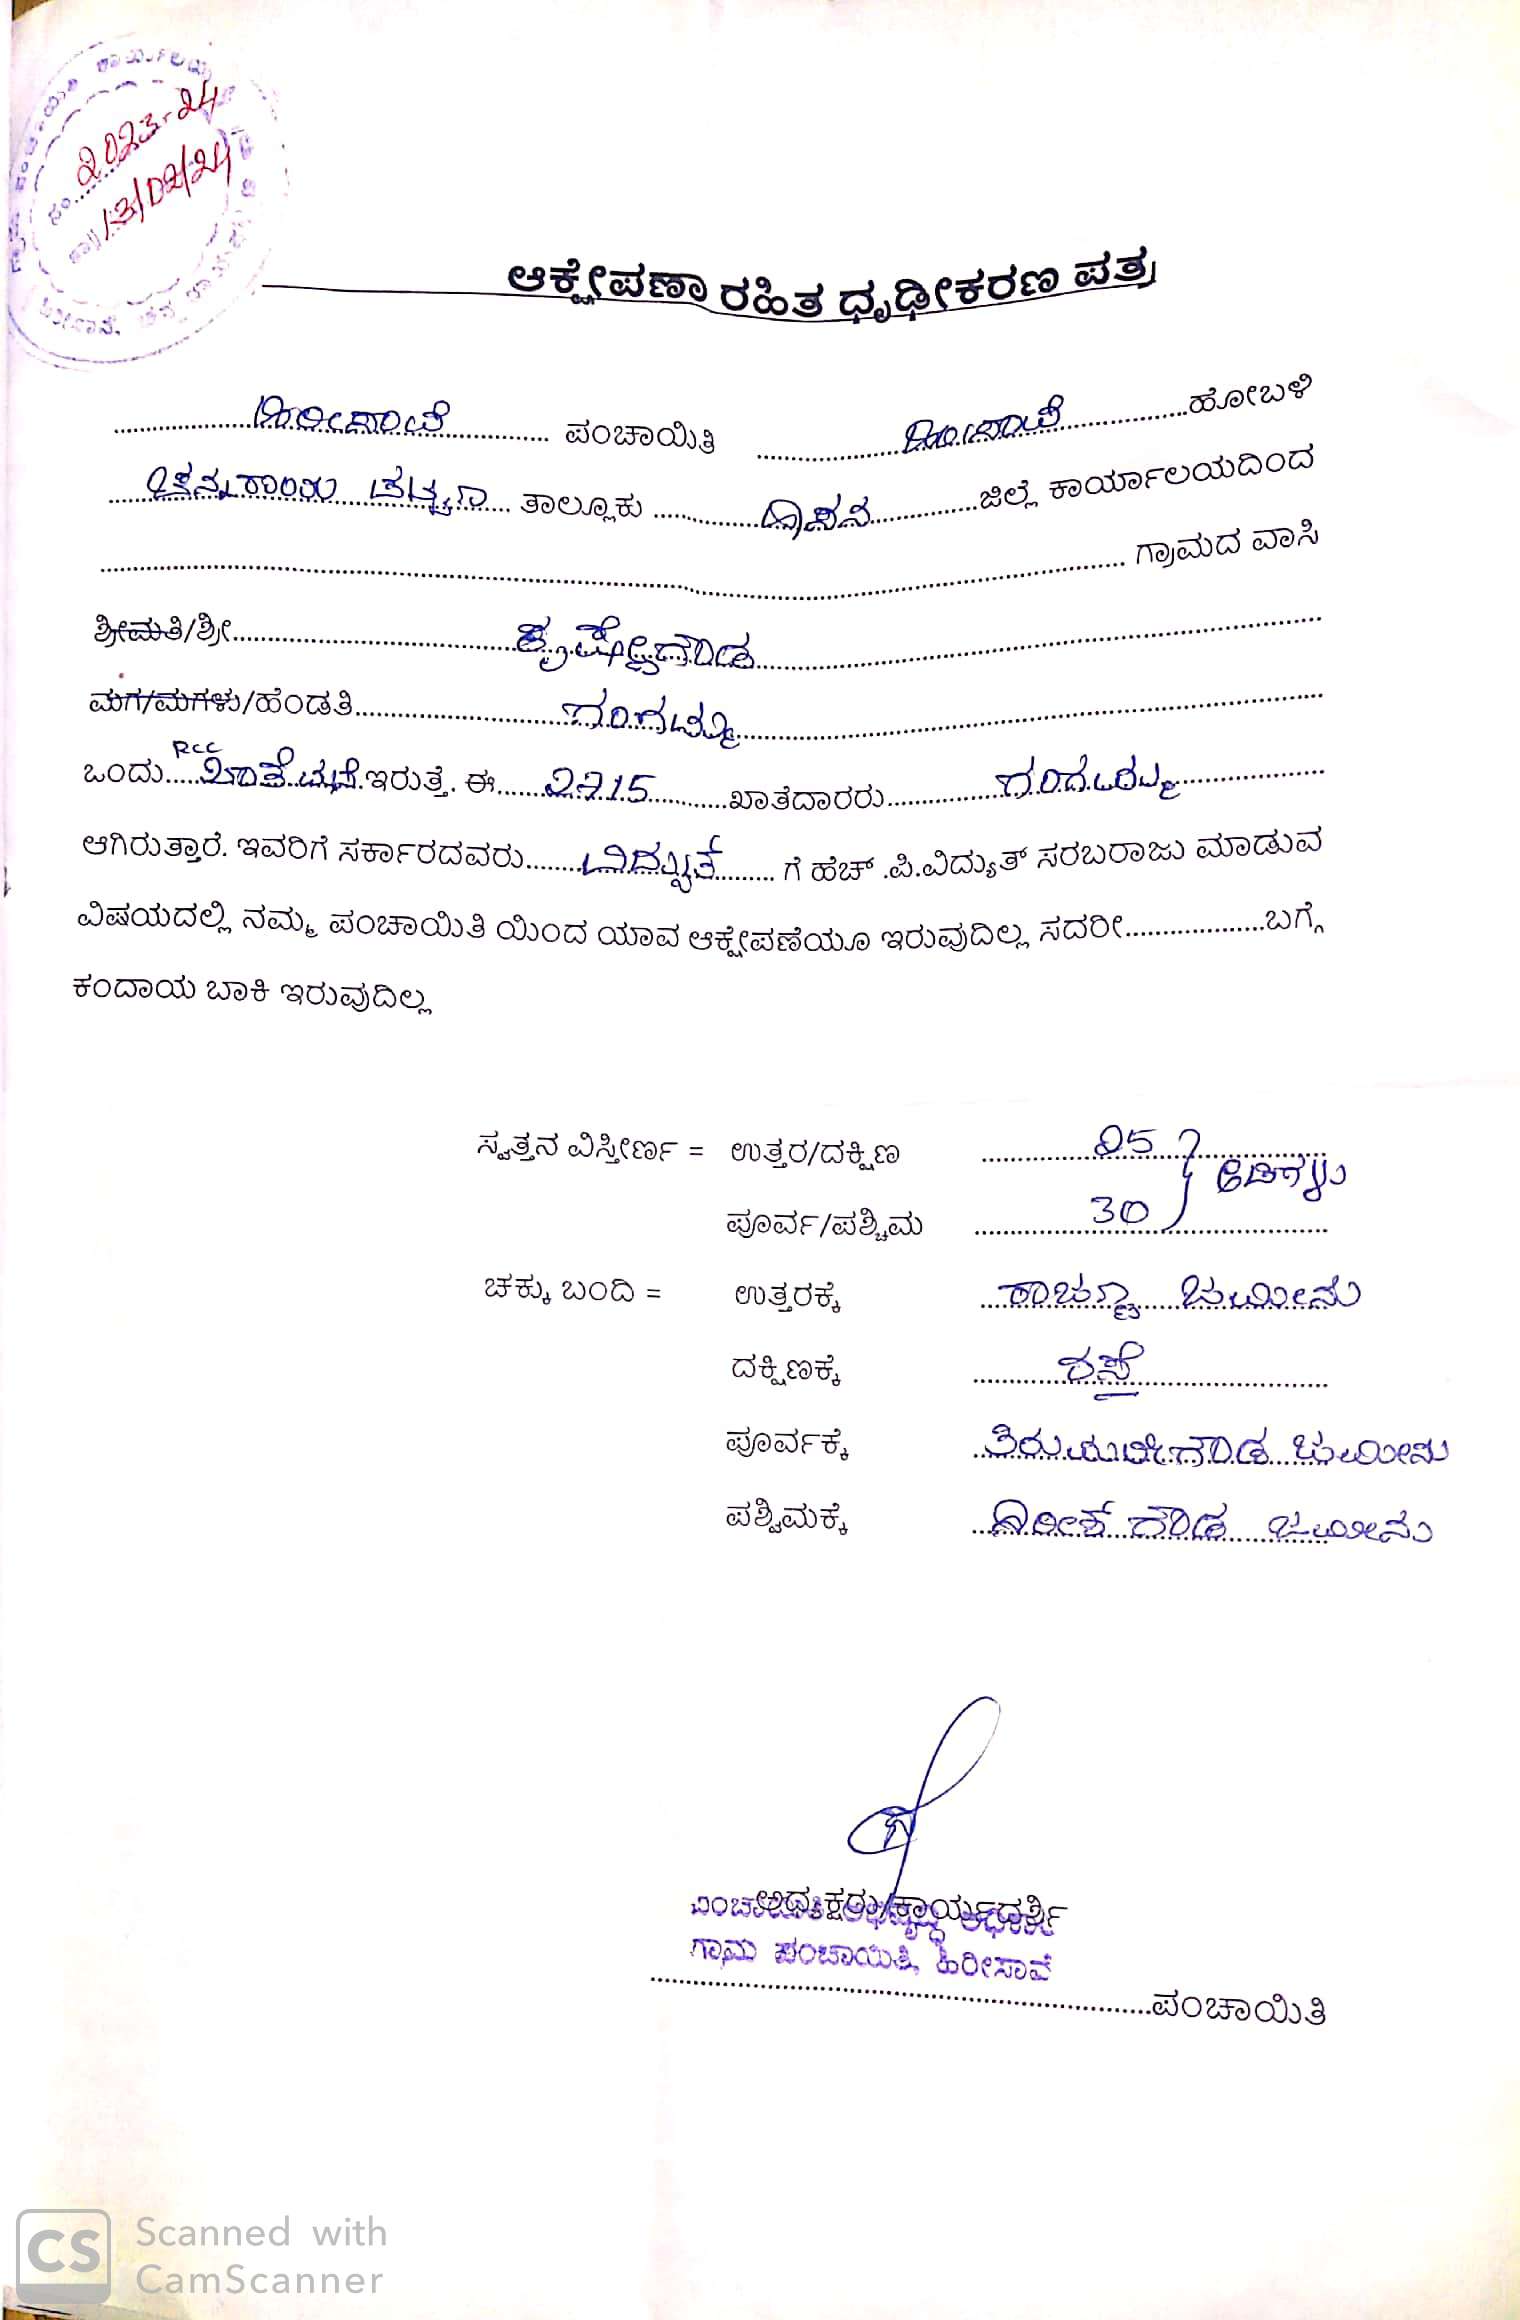 ಕಾರ್ಯಾಲಯ
ಸಂ......2023-24
ತಾ|| 13/02/24
ಆಕ್ಷೇಪಣಾ ರಹಿತ ಧೃಢೀಕರಣ ಪತ್ರ
ಹಿರೀಸಾವೆ ಪಂಚಾಯಿತಿ ಹಿರೀಸಾವೆ ಹೋಬಳಿ
ಚನ್ನರಾಯ ಪಟ್ಟಣ ತಾಲ್ಲೂಕು ಹಾಸನ ಜಿಲ್ಲೆ ಕಾರ್ಯಾಲಯದಿಂದ
ಗ್ರಾಮದ ವಾಸಿ
ಶ್ರೀಮತಿ/ಶ್ರೀ ಕೃಷ್ಣೇಗೌಡ
ಮಗ/ಮಗಳು/ಹೆಂಡತಿ ಗಂಗಮ್ಮ
ಒಂದು RCC ವಾಸದ ಮನೆ ಇರುತ್ತೆ. ಈ 2715 ಖಾತೆದಾರರು
ಆಗಿರುತ್ತಾರೆ. ಇವರಿಗೆ ಸರ್ಕಾರದವರು ವಿದ್ಯುತ್ ಗೆ ಹೆಚ್ .ಪಿ.ವಿದ್ಯುತ್ ಸರಬರಾಜು ಮಾಡುವ
ವಿಷಯದಲ್ಲಿ ನಮ್ಮ ಪಂಚಾಯಿತಿ ಯಿಂದ ಯಾವ ಆಕ್ಷೇಪಣೆಯೂ ಇರುವುದಿಲ್ಲ ಸದರೀ..................ಬಗ್ಗೆ
ಕಂದಾಯ ಬಾಕಿ ಇರುವುದಿಲ್ಲ
ಸ್ವತ್ತನ ವಿಸ್ತೀರ್ಣ = ಉತ್ತರ/ದಕ್ಷಿಣ 25
ಅಡಿಗಳು
ಪೂರ್ವ/ಪಶ್ಚಿಮ 30
ಚಕ್ಕು ಬಂದಿ = ಉತ್ತರಕ್ಕೆ ರಾಜಣ್ಣ ಜಮೀನು
ದಕ್ಷಿಣಕ್ಕೆ ರಸ್ತೆ
ಪೂರ್ವಕ್ಕೆ ಜಮೀನು
ಪಶ್ವಿಮಕ್ಕೆ ಗೌಡ ಜಮೀನು
ಅಧ್ಯಕ್ಷರು/ಕಾರ್ಯದರ್ಶಿ
ಪಂಚಾಯಿತಿ ಅಭಿವೃದ್ಧಿ ಅಧಿಕಾರಿ
ಗ್ರಾಮ ಪಂಚಾಯಿತಿ, ಹಿರೀಸಾವೆ
..................ಪಂಚಾಯಿತಿ
CS Scanned with
CamScanner